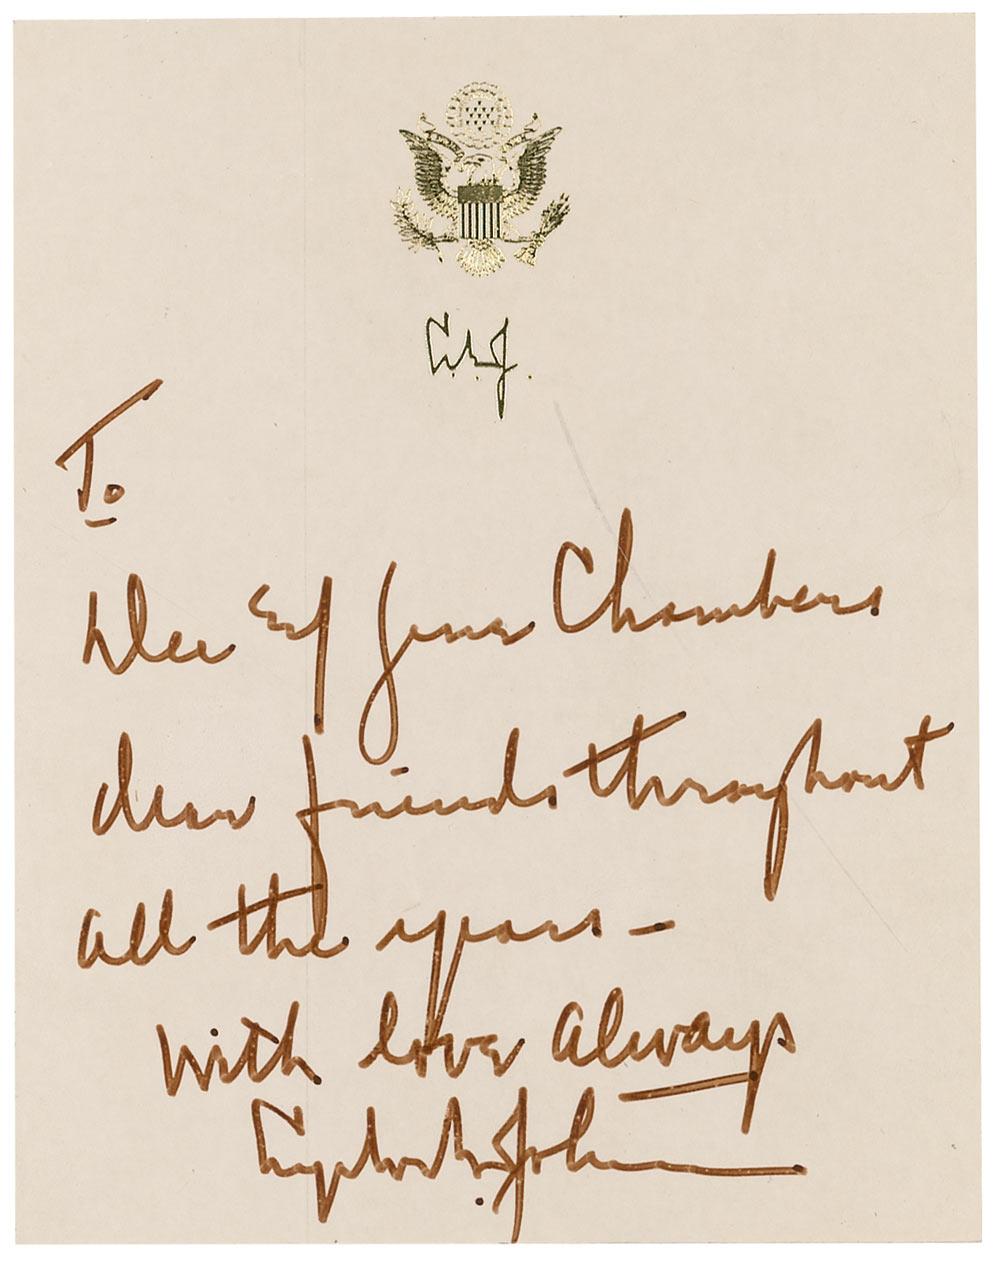 LBJ.
To
Dee & Gene Chambers
dear friends throughout
all the years –
with love always
Lyndon B. Johnson